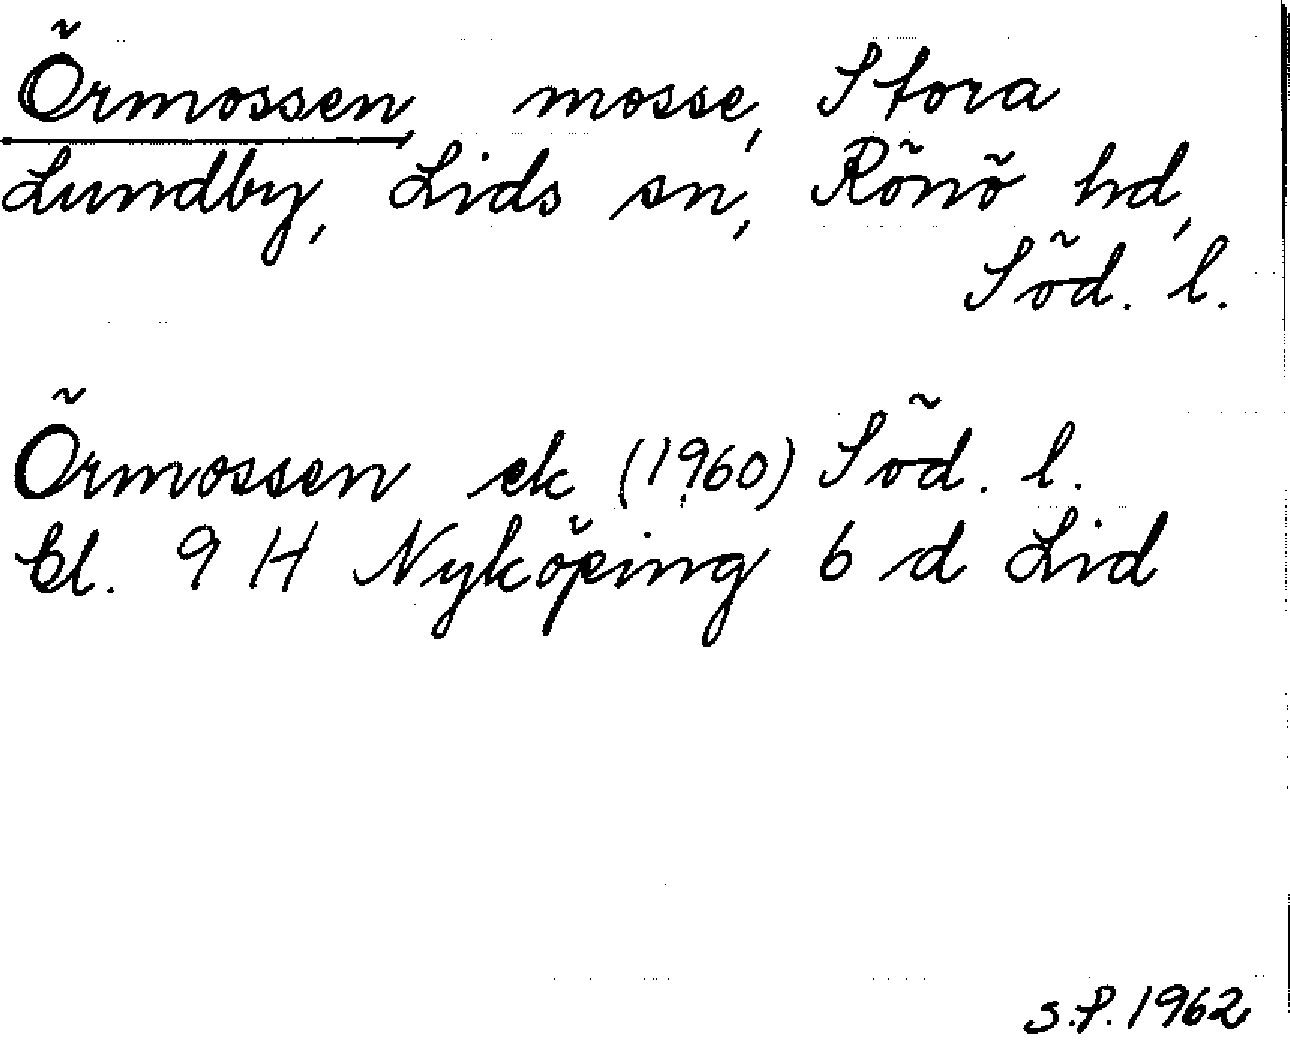 Örmossen, mosse, Stora
Lundby, Lids sn, Rönö hd,
Söd. l.
Örmossen ek (1960) Söd. l.
bl. 9 H Nyköping 6 d Lid
S.P. 1962